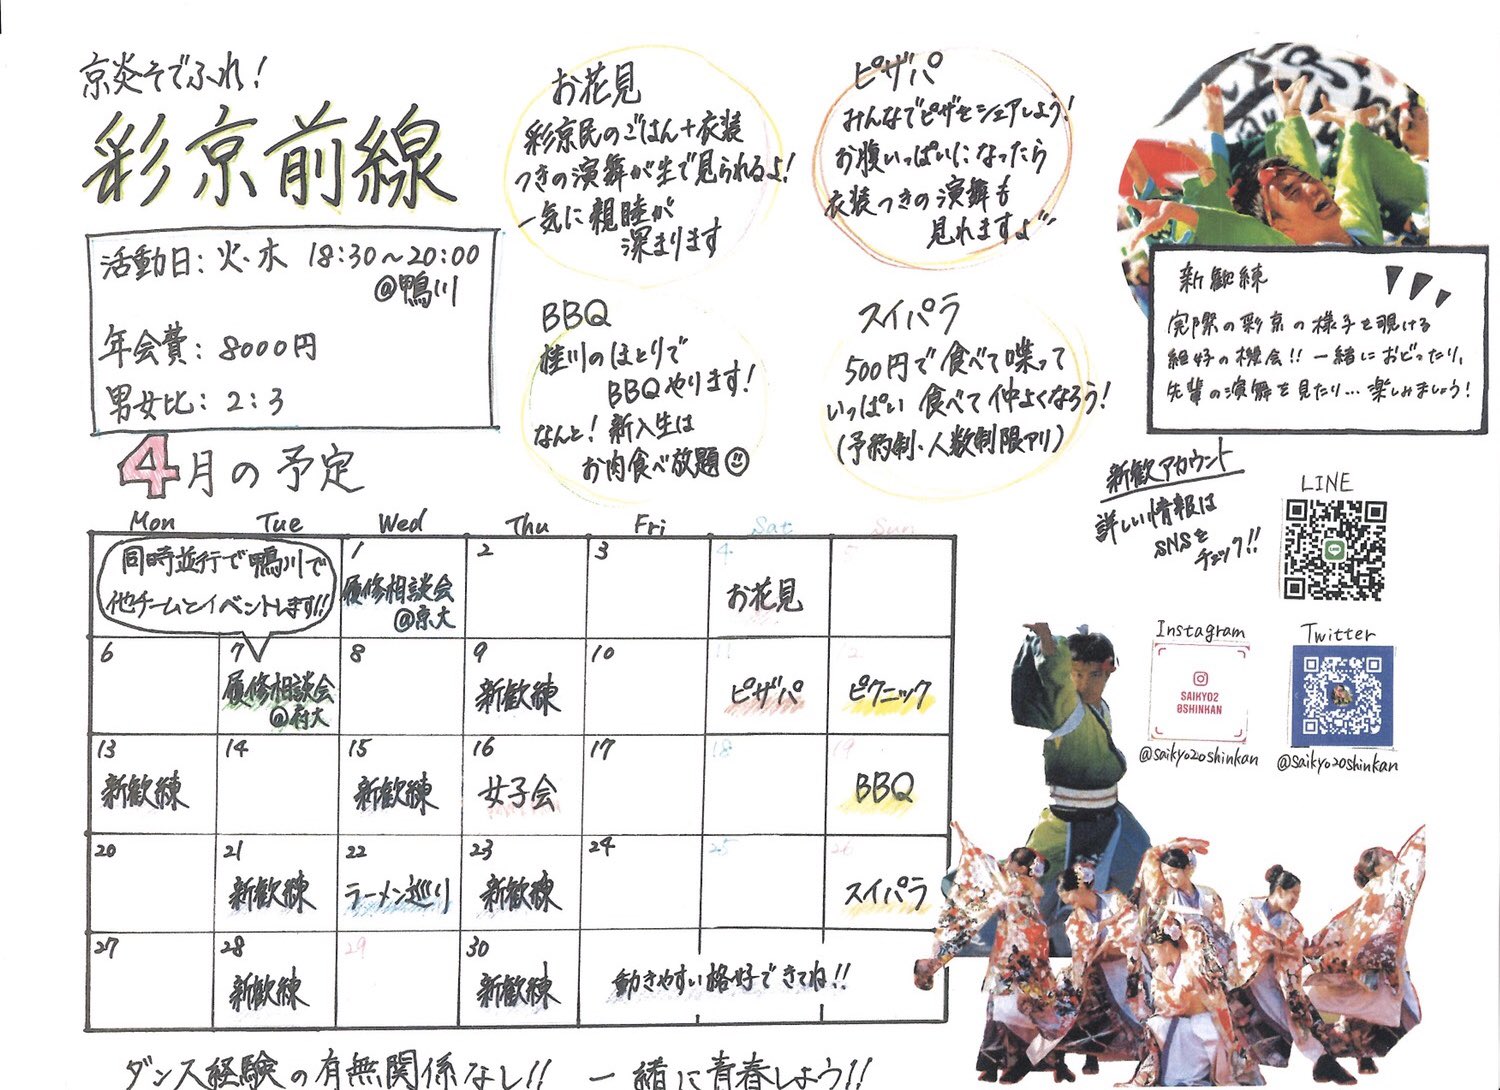 京炎そでふれ!
彩京前線
活動日: 火・木 18:30~20:00
@鴨川
年会費: 8000円
男女比: 2:3
お花見
彩京民のごはん+衣装
つきの演舞が生で見られるよ!
一気に親睦が
深まります
ピザパ
みんなでピザをシェアしよう!
お腹いっぱいになったら
衣装つきの演舞も
見れますよ
BBQ
桂川のほとりで
BBQやります!
なんと! 新入生は
お肉食べ放題
スイパラ
500円で食べて喋って
いっぱい食べて仲よくなろう!
(予約制・人数制限アリ)
新歓練
実際の彩京の様子を覗ける
絶好の機会!! 一緒におどったり、
先輩の演舞を見たり…楽しみましょう!
新歓アカウント
詳しい情報は
SNSを
チェック!!
LINE
Instagram
SAIKYO2
0SHINKAN
@saikyo20shinkan
Twitter
@saikyo20shinkan
4月の予定
Mon Tue Wed Thu Fri Sat Sun
同時並行で鴨川で
他チームとイベントします!!
1 2 3 4 5
履修相談会
@京大
お花見
6 7 8 9 10 11 12
履修相談会
@府大
新歓練
ピザパ
ピクニック
13 14 15 16 17 18 19
新歓練
新歓練
女子会
BBQ
20 21 22 23 24 25 26
新歓練
ラーメン巡り
新歓練
スイパラ
27 28 29 30
新歓練
新歓練
動きやすい格好できてね!!
ダンス経験の有無関係なし!! 一緒に青春しよう!!